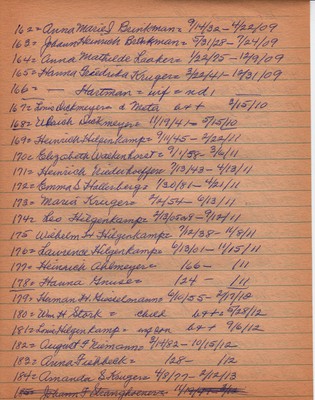 162= Anna Maria I Brinkman= 9/14/32 - 4/22/09
163= Johann Heinrich Brinkman= 5/31/28 - 7/24/09
164= Anna Mathilde Laaker= 1/22/25 - 12/9/09
165= Hanna Fredericka Kruger= 2/22/41 - 12/31/09
166= — Hartman= wife = nd1
167= Louis Dickmeyer= & Meta b++ 2/15/10
168= Ulrich Dickmeyer= 11/19/41 - 2/15/10
169= Heinrich Hilgenkamp= 9/11/45 - 2/22/11
170= Elizabeth Wrekenhorst= 9/1/58 - 3/6/11
171= Heinrich Niederhoeffer= 7/13/43 - 4/13/11
172= Emma S Hallerberg= 1/30/81 - 4/21/11
173= Maria Kruger= 2/24/54 - 6/13/11
174= Leo Hilgenkamp= 9/12/11
175 Wilhelm H Hilgenkamp= 7/12/38 - 11/8/11
176= Laurence Hilgenkamp= 6/13/01 - 11/15/11
177= Heinrich Ahlmeyer= 166 - /11
178= Hanna Gnuse= 124 - /11
179= Herman H Giesselmann= 6/10/55 - 2/17/12
180= Wm H Stork= child b++ 5/28/12
181= Louis Hilgenkamp= b++ 9/6/12
182= August F Niemann= 3/14/82 - 10/15/12
183= Anna Fishbeck= 128 - /12
184= Amanda E Kruger= 4/8/77 - 2/12/13
185= Johann F Stranghoener=